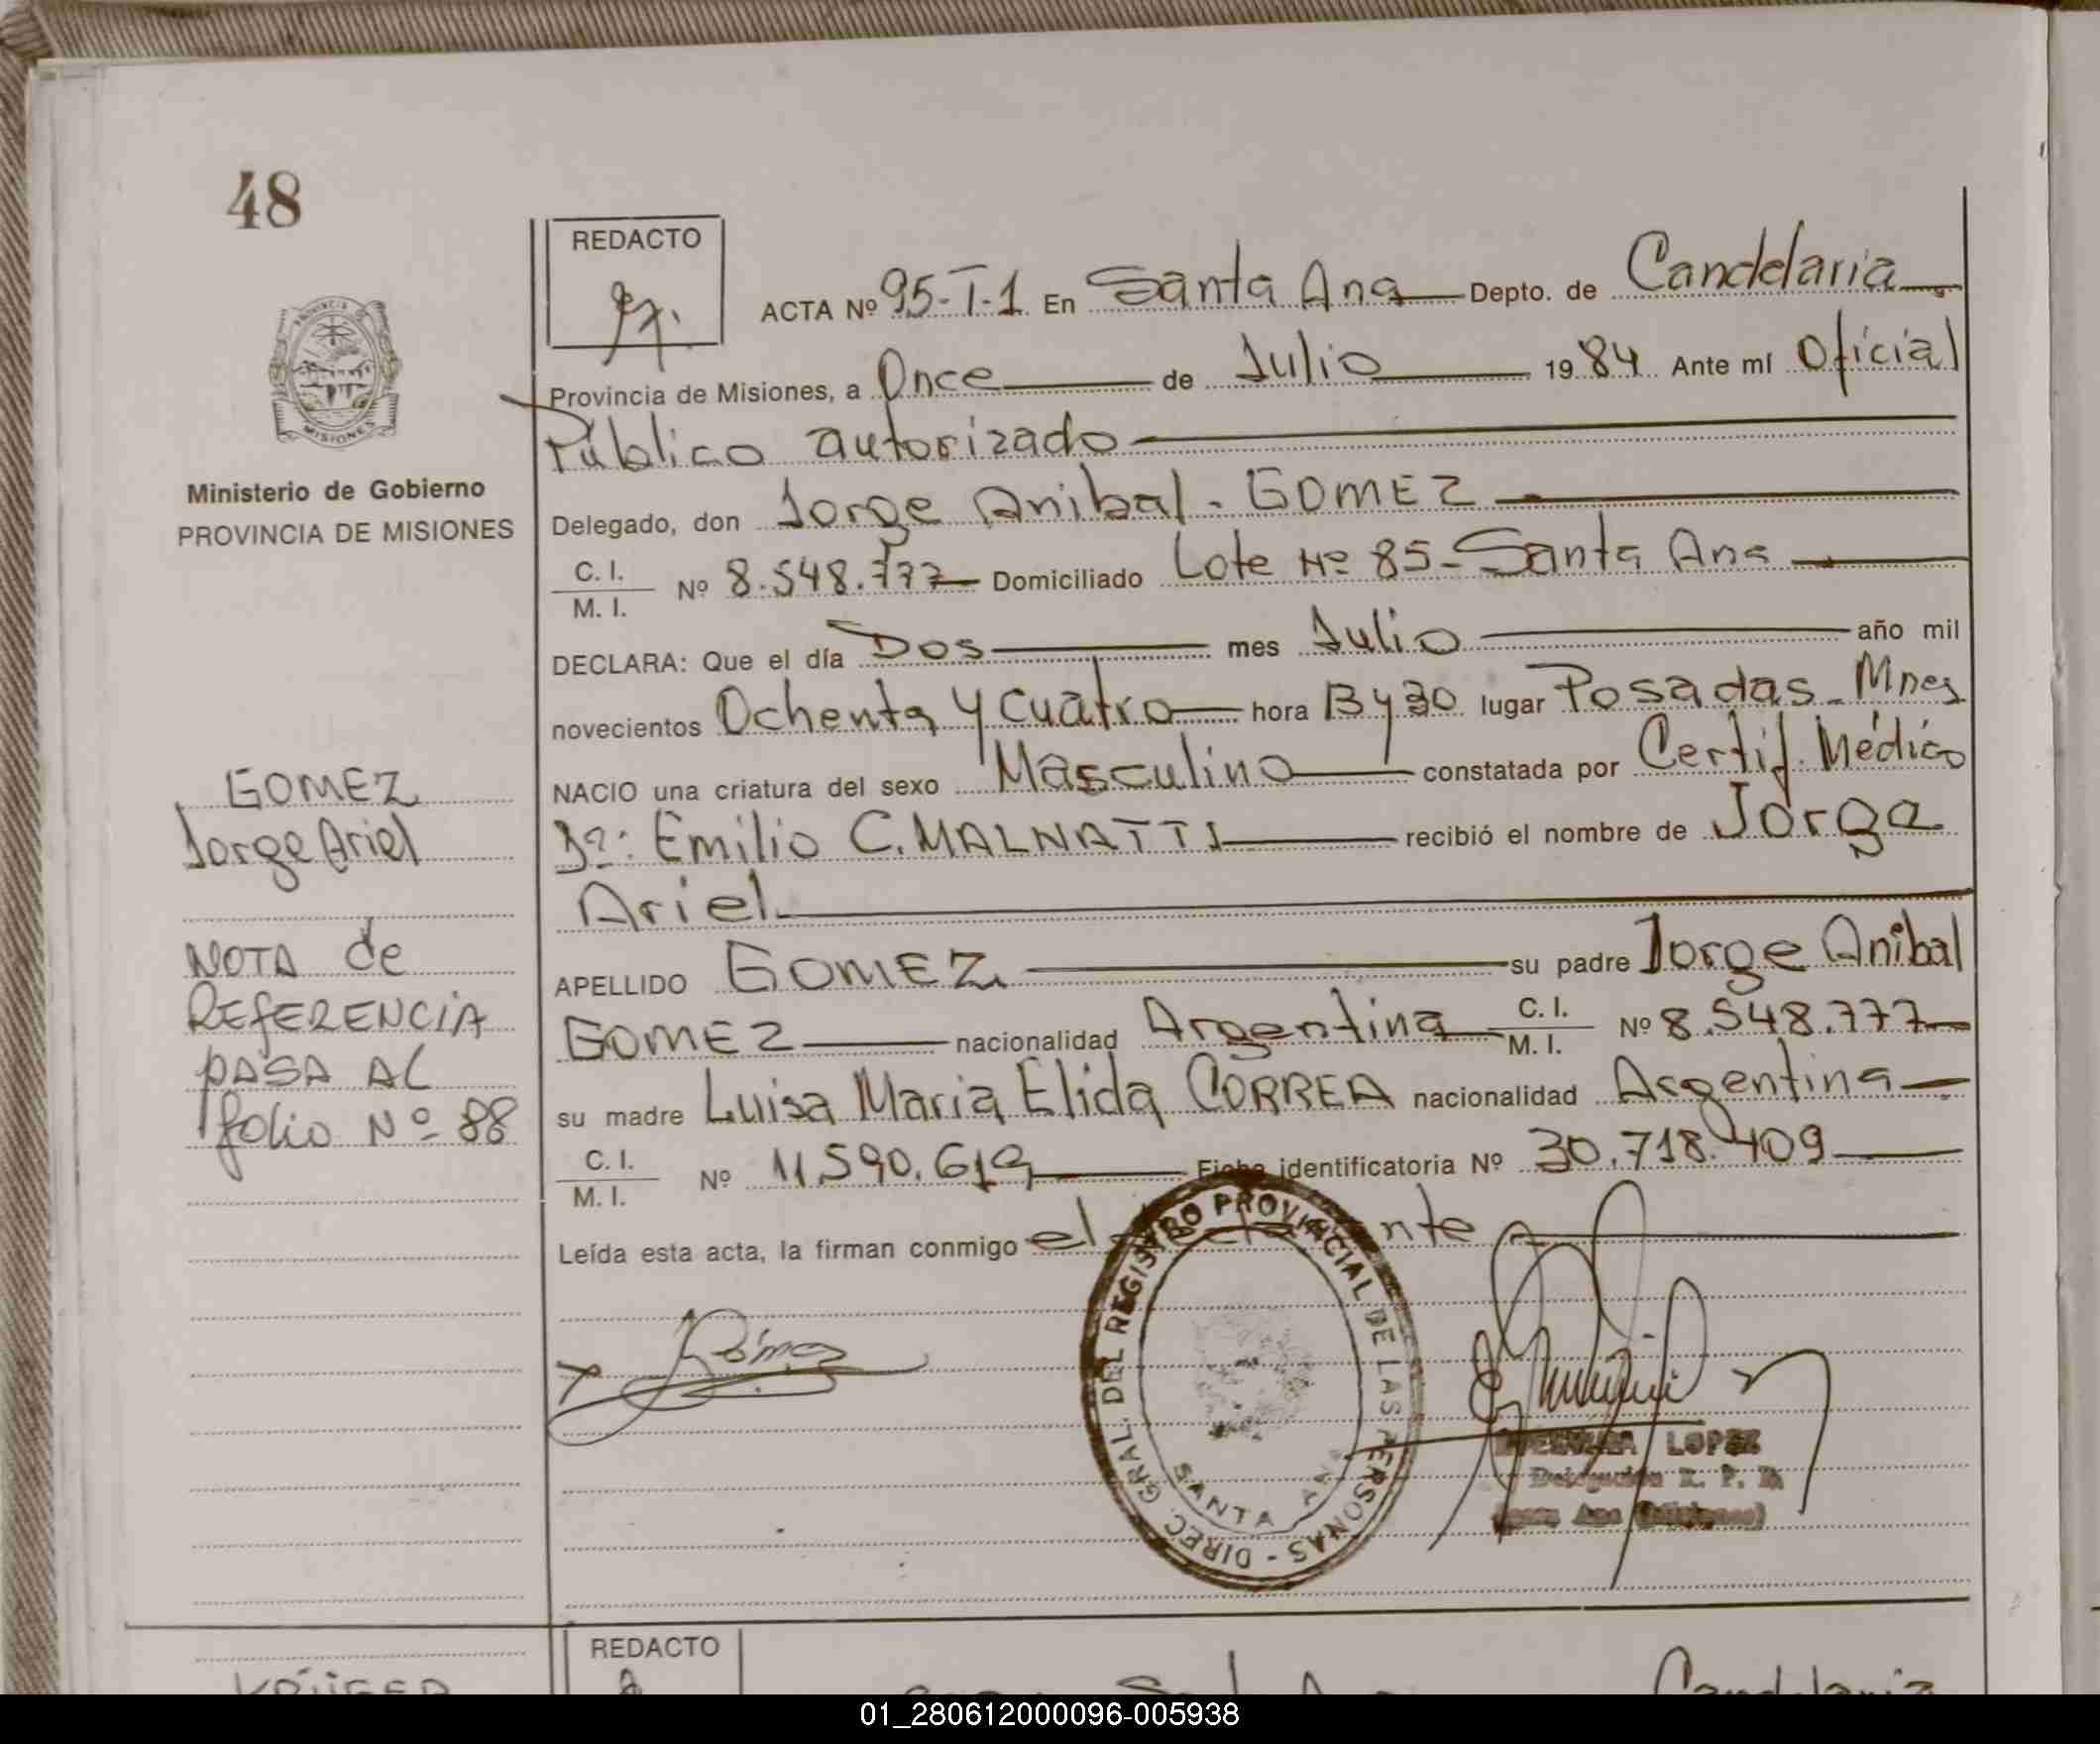 48
REDACTO
ACTA Nº 95-T-1 En Santa Ana Depto. de Candelaria
Provincia de Misiones, a Once de Julio 1984 Ante mí Oficial
Público autorizado
Delegado, don Jorge Anibal - GOMEZ
C. I.
M. I.
Nº 8.548.777 Domiciliado Lote Nº 85 - Santa Ana
DECLARA: Que el día Dos mes Julio año mil
novecientos Ochenta y Cuatro hora 13 y 30 lugar Posadas - Mnes
NACIO una criatura del sexo Masculino constatada por Certif. Médico
Dr: Emilio C. MALNATTI recibió el nombre de Jorge
Ariel
APELLIDO GOMEZ su padre Jorge Anibal
GOMEZ nacionalidad Argentina C. I. M. I. Nº 8.548.777
su madre Luisa Maria Elida CORREA nacionalidad Argentina
C. I.
M. I.
Nº 11.590.619 Ficha identificatoria Nº 30.718.409
Leída esta acta, la firman conmigo el
Gómez
DIREC. GRAL. DEL REGISTRO PROVINCIAL DE LAS PERSONAS -
SANTA ANA
LOPEZ
Delegación R. P.
Santa Ana (Misiones)
PROVINCIA DE
MISIONES
Ministerio de Gobierno
PROVINCIA DE MISIONES
GOMEZ
Jorge Ariel
NOTA de
REFERENCIA
PASA AL
folio Nº 88
REDACTO
01_280612000096-005938